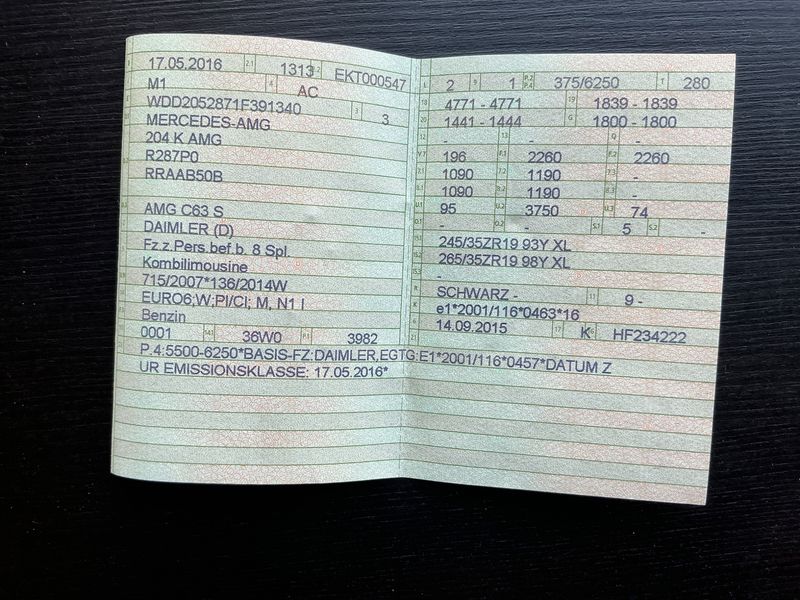 17.05.2016 2.1 1313 EKT000547
M1 4 AC
WDD2052871F391340 3 3
MERCEDES-AMG
204 K AMG
R287P0
RRAAB50B
AMG C63 S
DAIMLER (D)
Fz.z.Pers.bef.b. 8 Spl.
Kombilimousine
715/2007*136/2014W
EURO6;W;PI/CI; M, N1 I
Benzin
0001 36W0 P.1 3982
L 2 9 1 P.2 P.4 375/6250 T 280
18 4771 - 4771 19 1839 - 1839
20 1441 - 1444 G 1800 - 1800
12 - 13 - Q -
V.7 196 F.1 2260 F.2 2260
7.1 1090 7.2 1190 7.3 -
8.1 1090 8.2 1190 8.3 -
U.1 95 U.2 3750 U.3 74
O.1 - O.2 - S.1 5 S.2 -
15.1 245/35ZR19 93Y XL
15.2 265/35ZR19 98Y XL
15.3 -
R SCHWARZ - 11 9 -
K e1*2001/116*0463*16
6 14.09.2015 17 K 16 HF234222
21 P.4:5500-6250*BASIS-FZ:DAIMLER,EGTG:E1*2001/116*0457*DATUM Z
UR EMISSIONSKLASSE: 17.05.2016*